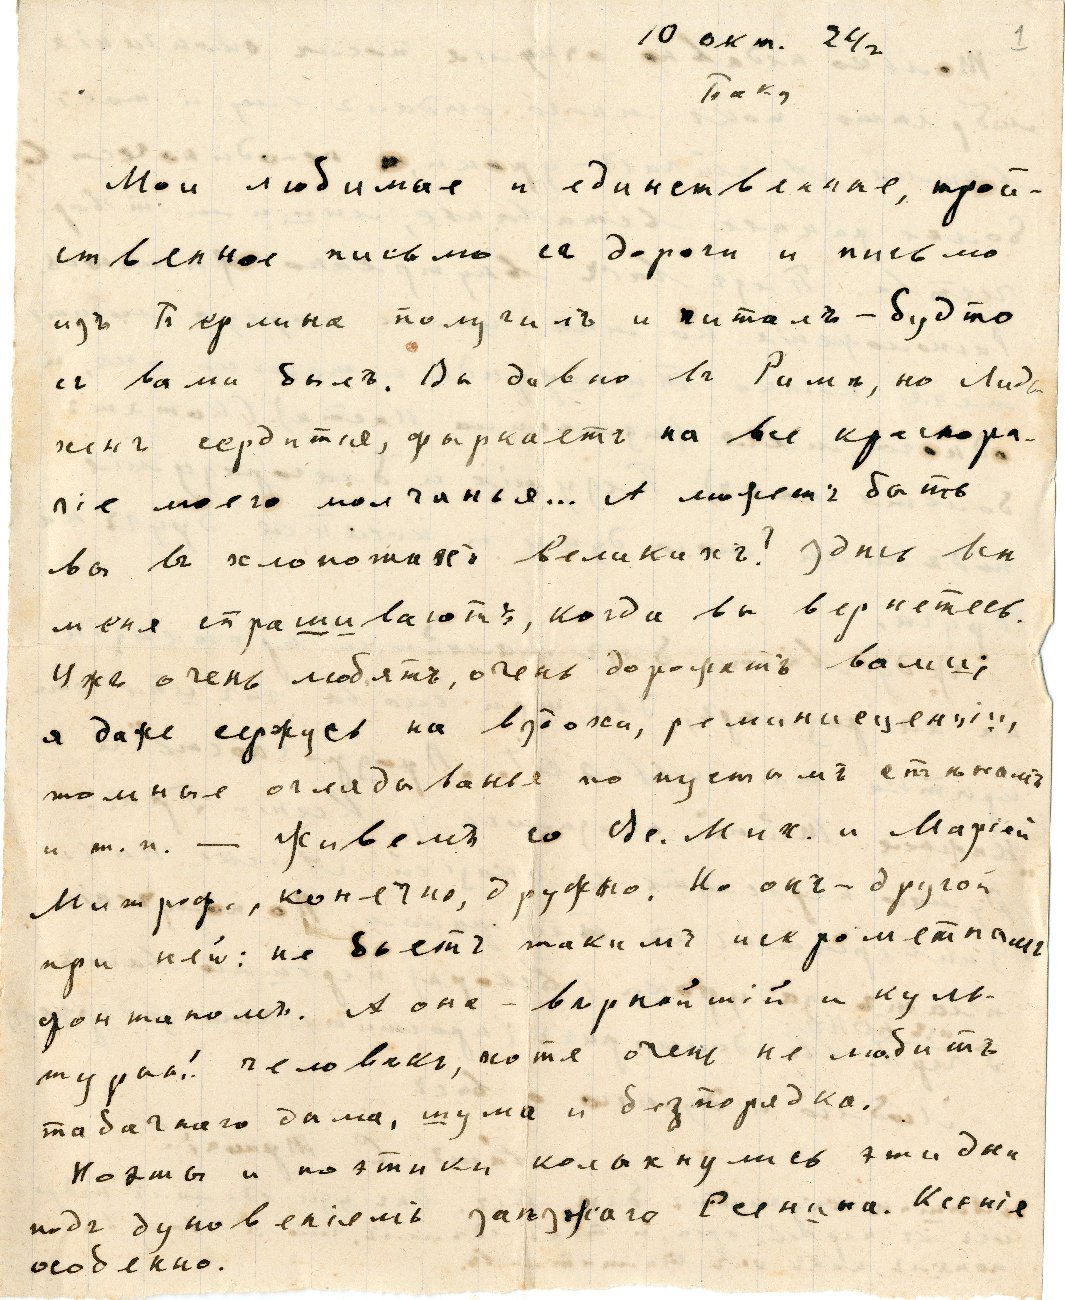 1
10 окт. 24 г
Баку
Мои любимые и единственные, трой-
ственное письмо съ дороги и письмо
изъ Берлина получилъ и читалъ – будто
съ вами былъ. Вы давно въ Римѣ, но Лиди
хенъ сердится, фыркаетъ на все краснорѣ-
чіе моего молчанья... А можетъ быть
вы въ хлопотахъ великихъ? Здѣсь всѣ
меня спрашиваютъ, когда вы вернетесь.
Ужъ очень любятъ, очень дорожатъ вами;
я даже сержусь на вздохи, реминисценціи,
томные оглядыванья по пустымъ стѣнамъ
и т. п. — Живемъ со Вс. Мих. и Маріей
Митроф., конечно, дружно. Но онъ – другой
при ней: не бьетъ такимъ искрометнымъ
фонтаномъ. А она – вѣрнѣйшій и куль-
турный человѣкъ, хотя очень не любитъ
табачнаго дыма, шума и безпорядка.
Поэты и поэтики колыхнулись эти дни
подъ дуновеніемъ заѣзжаго Есенина. Ксенія
особенно.